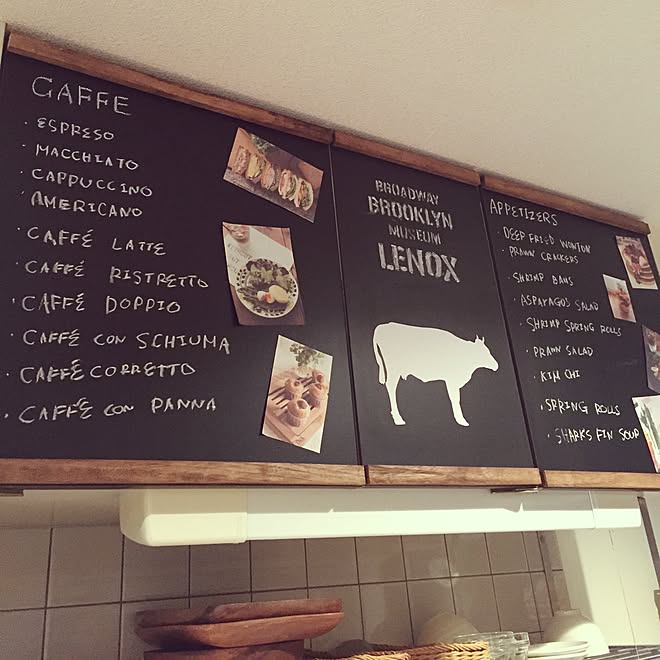 CAFFE
· ESPRESO
· MACCHIATO
· CAPPUCCINO
· AMERICANO
· CAFFÉ LATTE
· CAFFÉ RISTRETTO
· CAFFÉ DOPPIO
· CAFFÉ CON SCHIUMA
· CAFFÉ CORRETTO
· CAFFÉ CON PANNA
BROADWAY
BROOKLYN
MUSEUM
LENOX
APPETIZERS
· DEEP FRIED WONTON
· PRAWN CRACKERS
· SHRIMP BAHS
· ASPAPAGOS SALAD
· SHRIMP SPRING ROLLS
· PRAWN SALAD
· KIM CHI
· SPRING ROLLS
· SHARKS FIN SOUP